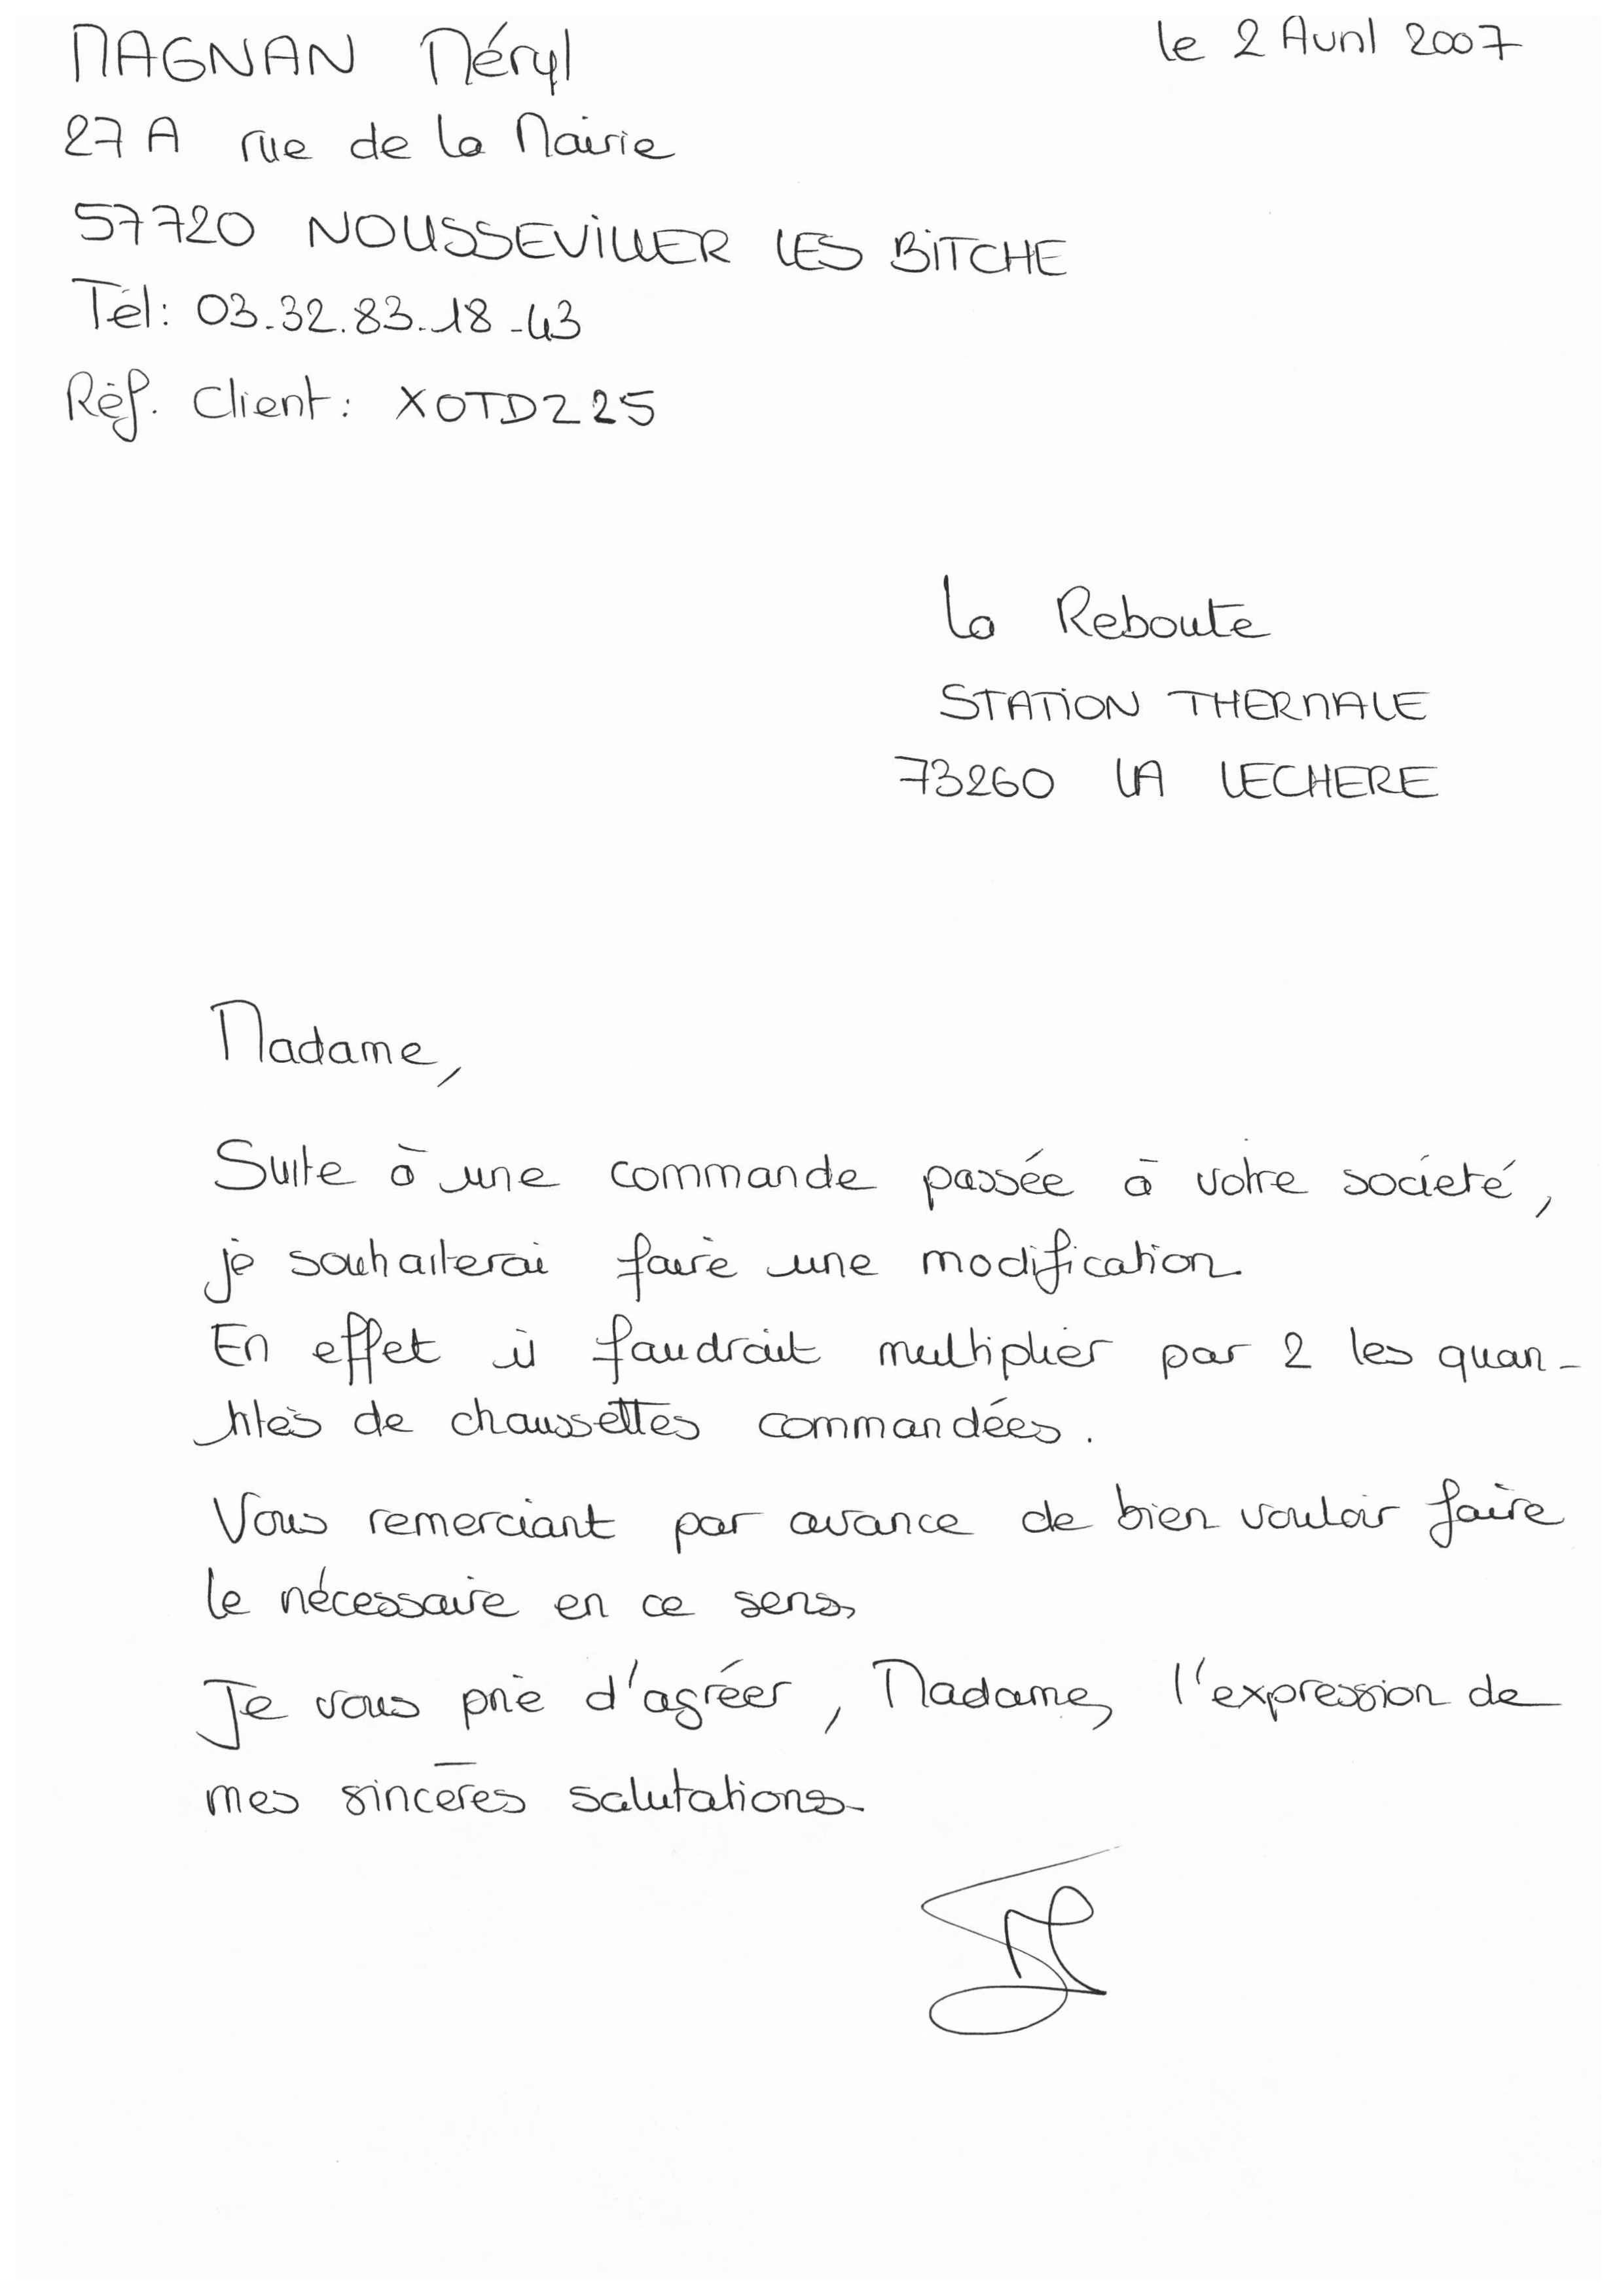 MAGNAN Méryl
le 2 Avril 2007
27 A rue de la Mairie
57720 NOUSSEVILLER LES BITCHE
Tél: 03.32.83.18-43
Réf. Client: XOTDZ25
La Reboute
STATION THERMALE
73260 LA LECHERE
Madame,
Suite à une commande passée à votre société,
je souhaiterai faire une modification.
En effet il faudrait multiplier par 2 les quan-
tités de chaussettes commandées.
Vous remerciant par avance de bien vouloir faire
le nécessaire en ce sens,
Je vous prie d'agréer, Madame, l'expression de
mes sincères salutations.